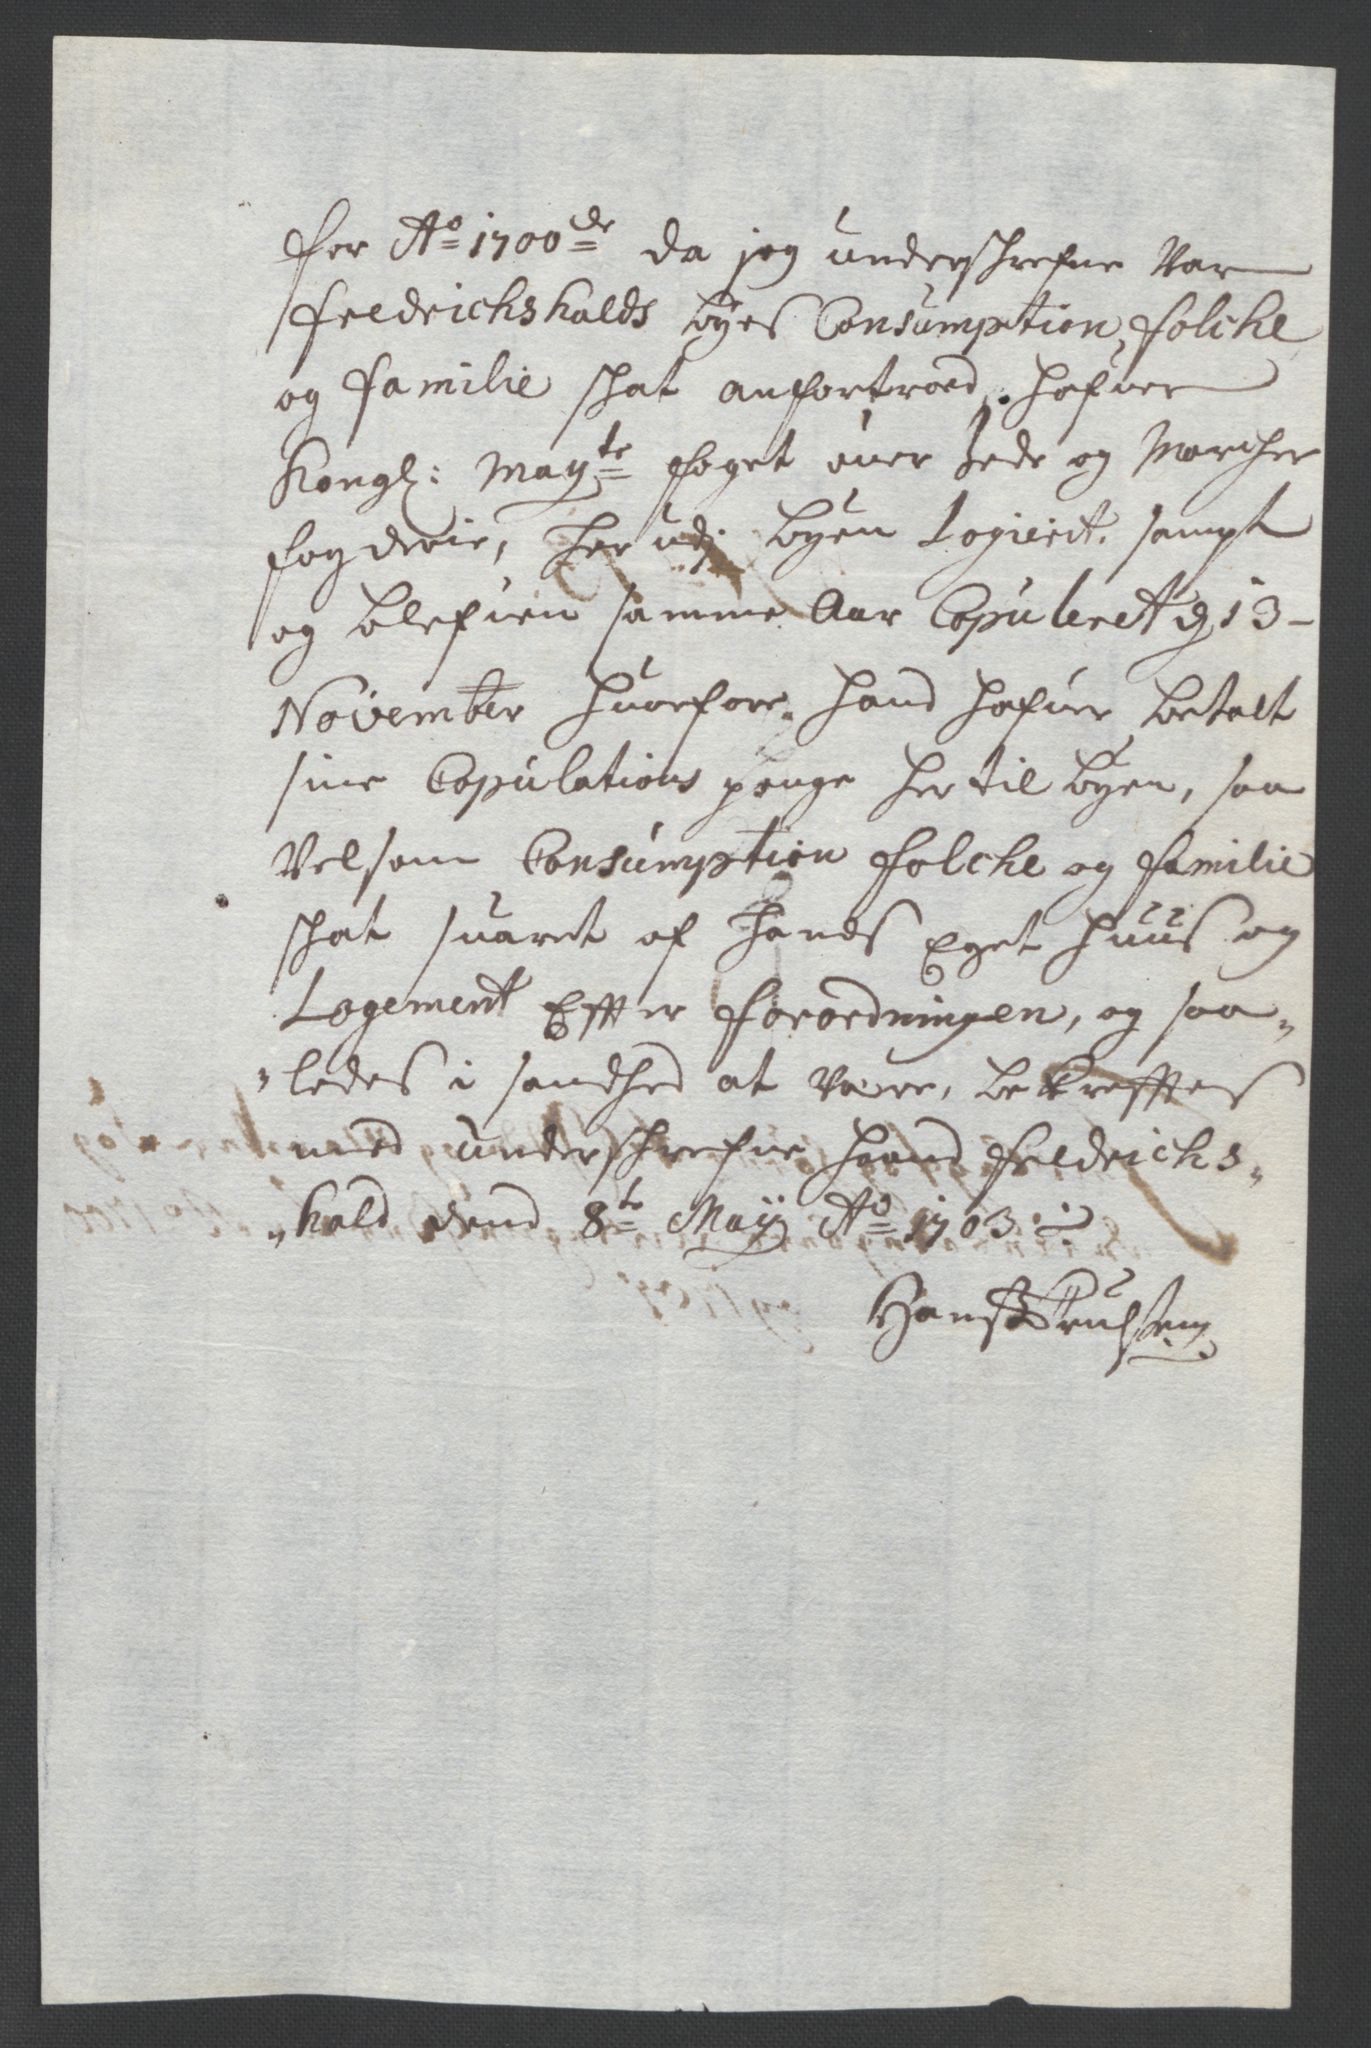 for Ao 1700de da jeg underschrefne var
fredrichshalds byes Consumption, folche
og familie schat anfortroed, hafuer
Kongl: Maytz foget ouer Jede og Marcher
fogderie, her udj byen Logierit, sampt
og blefuen samme Aar Copuleret d 13
November huorfore hand hafuer betalt
sine Copulations penge her til byen, saa
velsom Consumption folche og familie
schat suaret af hands Eget huus og
Logement Effter forordningen, og saa„
„ledes i sandhed at vere, bekreffter
med underschrefne haand fredrichs„
„hald dend 8te Maij Ao 1703
Hans Trulsen